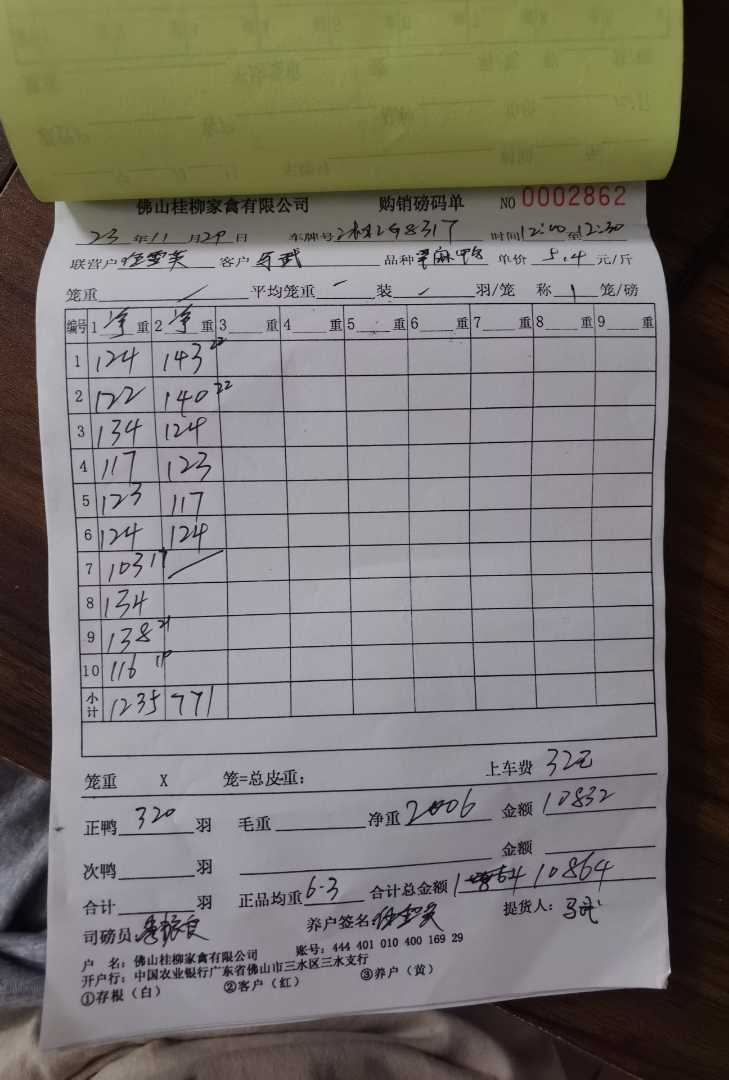 佛山桂柳家禽有限公司 购销磅码单 NO 0002862
23 年 11 月 29 日 车牌号 时间 12:00 至 12:30
联营户 客户 马武 品种 单价 5.4 元/斤
笼重 平均笼重 装 羽/笼 称 1 笼/磅
编号 1 净 重 2 净 重 3 重 4 重 5 重 6 重 7 重 8 重 9 重
1 124 143 22
2 122 140 22
3 134 124
4 117 123
5 123 117
6 124 124
7 103 17
8 134
9 138 21
10 116 19
小计 1235 771
笼重 X 笼=总皮重: 上车费 32元
正鸭 320 羽 毛重 净重 2006 金额 10832
次鸭 羽 金额
合计 羽 正品均重 6.3 合计总金额 10864
司磅员: 养户签名: 提货人: 马武
户 名: 佛山桂柳家禽有限公司 账号: 444 401 010 400 169 29
开户行: 中国农业银行广东省佛山市三水区三水支行
①存根（白） ②客户（红） ③养户（黄）